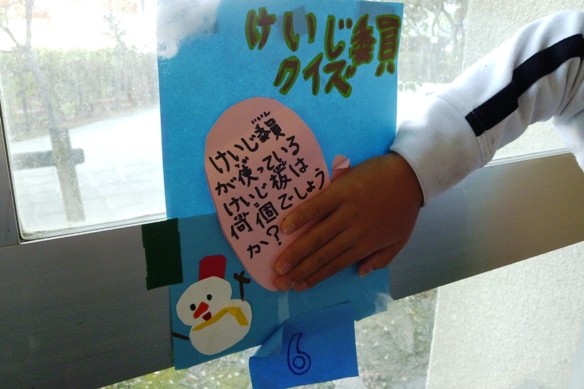 けいじ委員
クイズ
けいじ委員
が使っている
けいじ板は
何個でしょう
か?
6